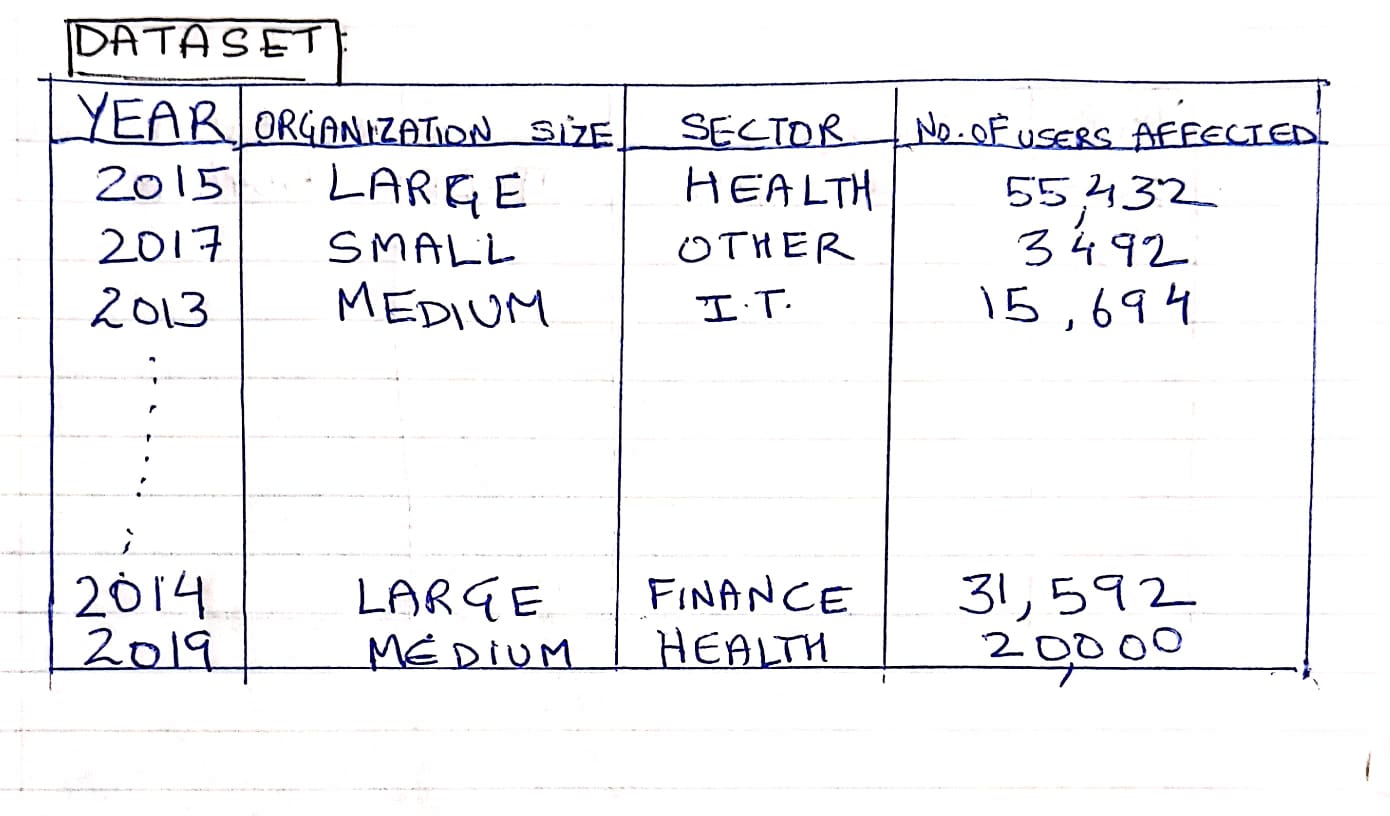 DATASET:
YEAR ORGANIZATION SIZE SECTOR No. OF USERS AFFECTED
2015 LARGE HEALTH 55,432
2017 SMALL OTHER 3,492
2013 MEDIUM I.T. 15,694
2014 LARGE FINANCE 31,592
2019 MEDIUM HEALTH 20,000